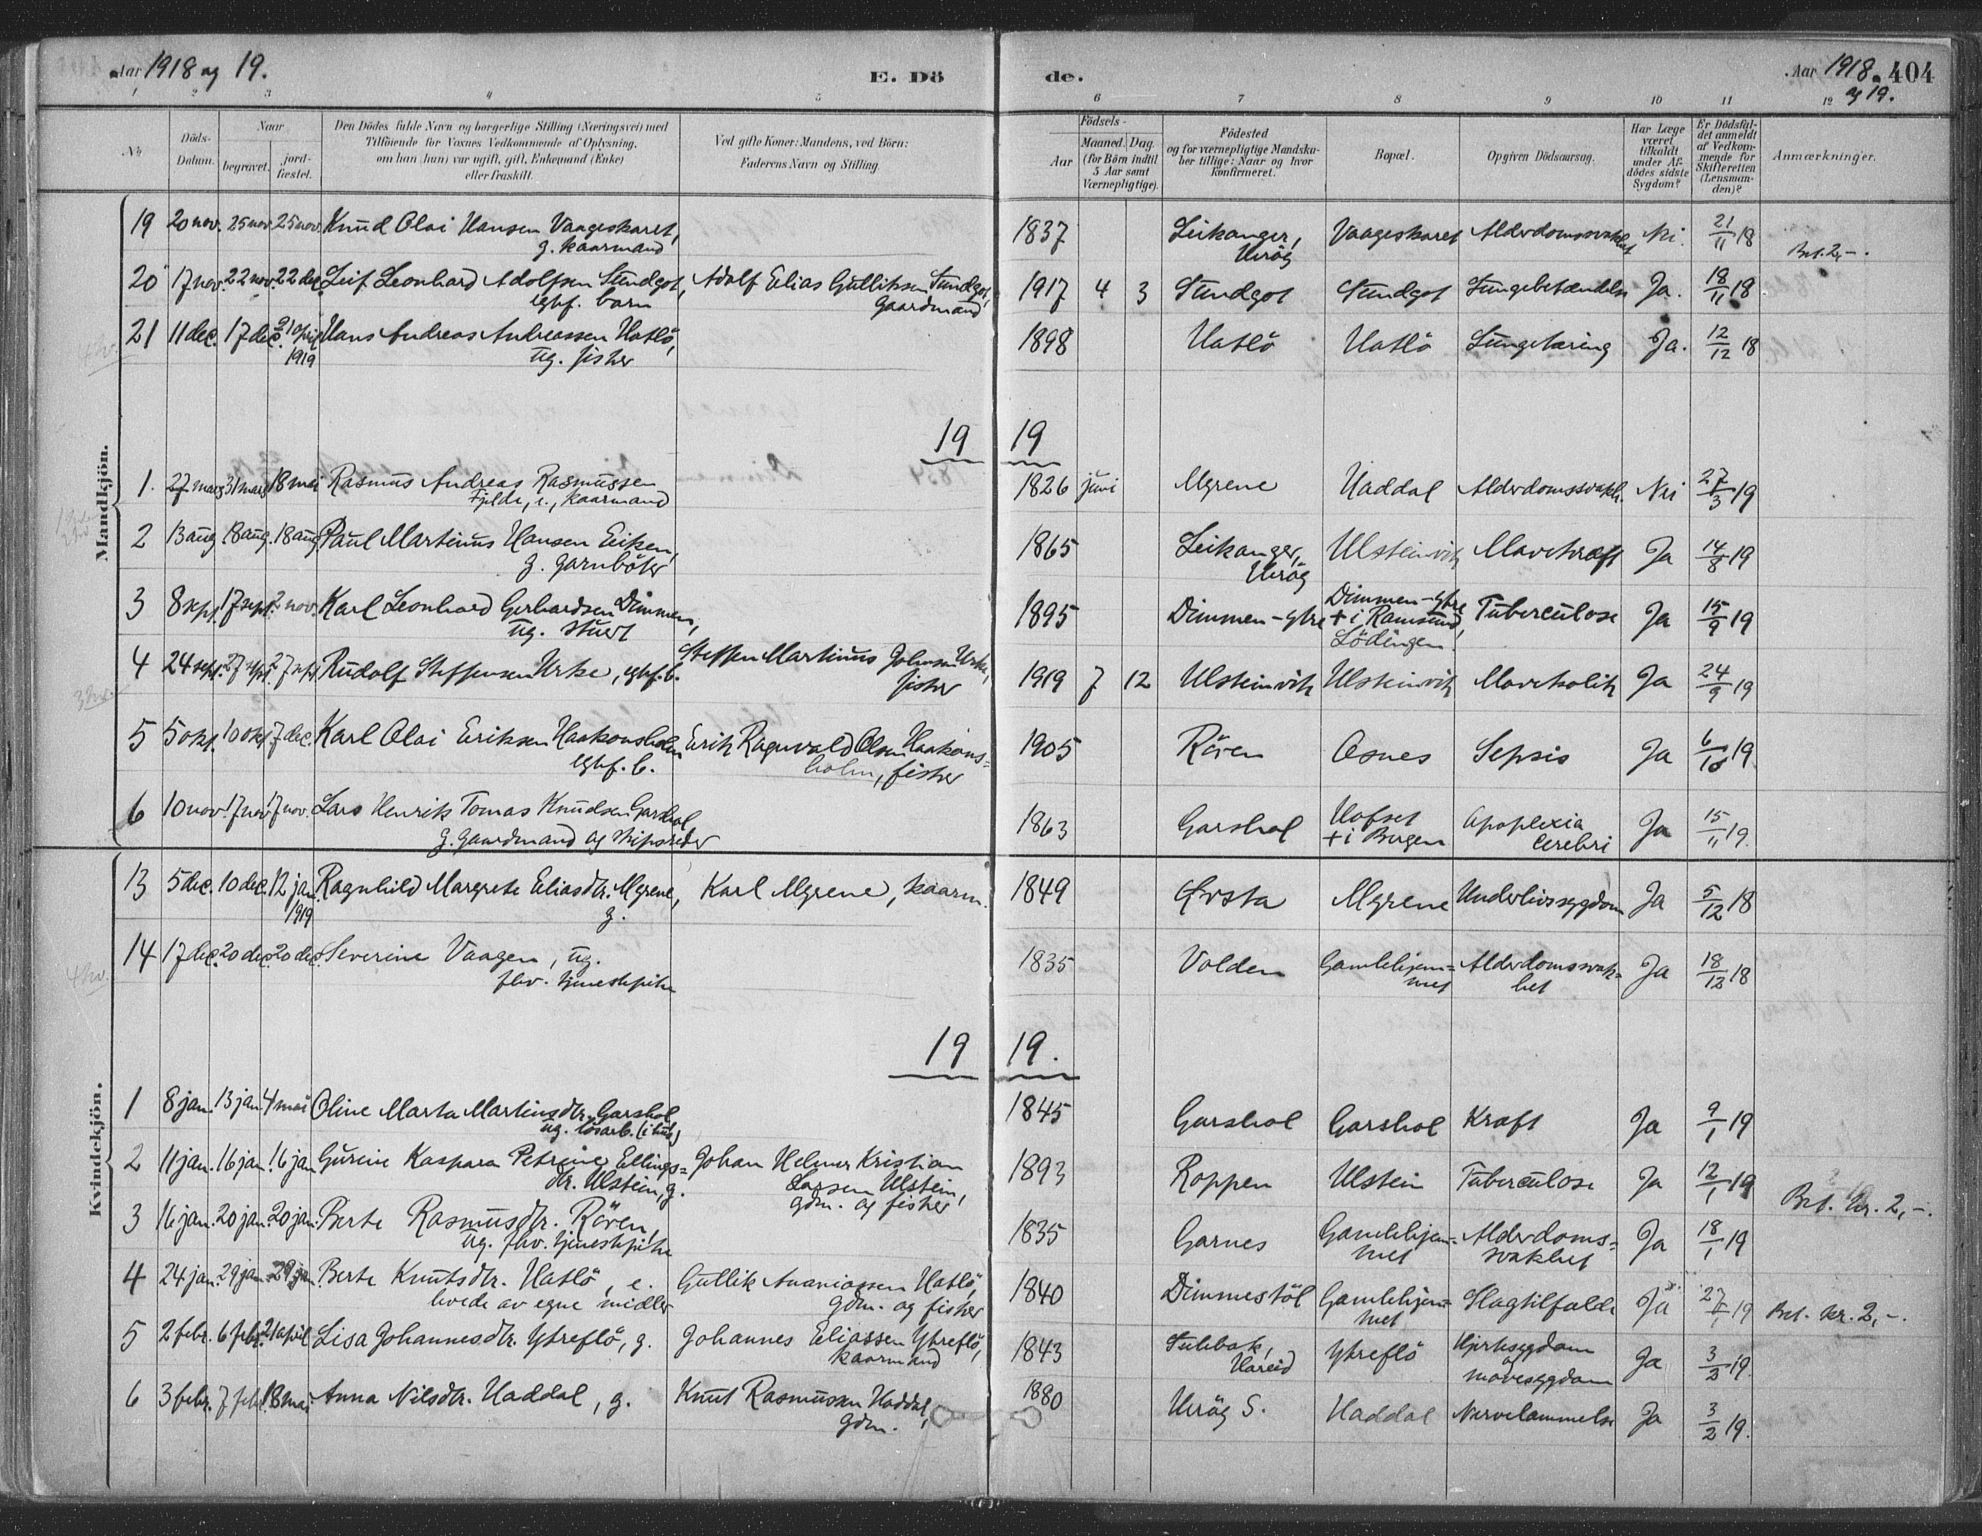 Aar 1918 og 19.
E. Dö
de.
Aar 1918 og 19.
404
1 2 3 4 5 6 7 8 9 10 11 12
No
Döds-Datum.
Naar
begravet.
jordfæstet.
Den Dödes fulde Navn og borgerlige Stilling (Næringsvei) med
Tilföiende for Voxnes Vedkommende af Oplysning,
om han (hun) var ugift, gift, Enkemand (Enke)
eller fraskilt.
Ved gifte Koner: Mandens, ved Börn:
Faderens Navn og Stilling.
Födsels-
Aar
Maaned. Dag
(for Börn indtil 5 Aar samt Værnepligtige).
Födested
og for værnepligtige Mandskaber tillige: Naar og hvor konfirmeret.
Bopæl.
Opgiven Dödsaarsag.
Har Læge været tilkaldt under Afdödes sidste Sygdom?
Er Dödsfaldet anmeldt af Vedkommende for Skifteretten (Lensmanden)?
Anmærkninger.
Mandkjön.
19 20 nov. 25 nov. 25 nov. Knud Olai Hansen Vaageskaret, g. kaarmand 1837 Leikanger, Heröy Vaageskaret Alderdomssvakhet Nei. 21/11 18 Bet. 2,-.
20 17 nov. 22 nov. 22 dec. Leif Leonhard Adolfsen Sundgot, egtef. barn Adolf Elias Gulliksen Sundgot, Gaardmand 1917 4 3 Sundgot Sundgot Lungebetændelse Ja. 18/11 18
21 11 dec. 17 dec. 21 april 1919 Hans Andreas Andreassen Hatlö, ug. fisker 1898 Hatlö Hatlö Lungetæring Ja. 12/12 18
19 19
1. 27 mars 31 mars 18 mai Rasmus Andreas Rasmussen Fjelde, e., kaarmand 1826 juni Myrene Haddal Alderdomssvakh. Nei 27/3 19
2 13 aug 18 aug. 18 aug. Paul Martinus Hansen Eiken, g. garnböter 1865 Leikanger, Heröy Ulsteinvik Mavekræft Ja 14/8 19
3 8 sept. 17 sept. 2 nov. Karl Leonhard Gerhardsen Dimmen, ug. stuert 1895 Dimmen-ytre Dimmen-ytre + i Ramsund, Lödingen. Tuberculose Ja 15/9 19
4 24 sept. 27 sept. 27 sept Rudolf Steffensen Urke, egtef. b. Steffen Martinus Johnsen Urke, fisker 1919 7 12 Ulsteinvik Ulsteinvik Mavekolik Ja 24/9 19
5 5 okt. 10 okt 7 dec. Karl Olai Eriksen Haakonsholm egtef. b. Erik Ragnvald Olsen Haakonsholm, fisker 1905 Rören Osnes Sepsis Ja 6/10 19
6 10 nov. 17 nov. 17 nov. Lars Henrik Tomas Knudsen Garshol g. gaardmand og skipsreder 1863 Garshol Hofset + i Bergen Apoplexia cerebri Ja 15/11 19.
Kvindekjön.
13 5 dec. 10 dec. 12 jan. 1919 Ragnhild Margrete Eliasdtr. Myrene, g. Karl Myrene, kaarm. 1849 Ørsta Myrene Underlivssygdom Ja 5/12 18
14 17 dec. 20 dec. 20 dec. Severine Vaagen, ug. fhv. tjenestepike 1835 Volden Gamlehjemmet Alderdomssvakhet Ja 18/12 18
19 19.
1 8 jan. 13 jan. 4 mai Oline Marta Martinusdtr. Garshol ug. lösarb. 1845 Garshol Garshol Kræft Ja 9/1 19
2 11 jan. 16 jan. 16 jan. Gurine Kaspara Petrine Ellingsdtr. Ulstein, g. Johan Helmer Kristian Larsen Ulstein, gdm. og fisker 1893 Roppen Ulstein Tuberculose Ja 12/1 19
3 16 jan. 20 jan. 20 jan. Berte Rasmusdtr. Rören, ug. fhv. tjenestepike 1835 Garnes Gamlehjemmet Alderdomssvakhet Ja 18/1 19 Bet. kr. 2,-.
4 24 jan. 29 jan. 29 jan. Berte Knutsdtr. Hatlö, e. levde av egne midler Gullik Ananiassen Hatlö, gdm. og fisker 1840 Dimmestöl Gamlehjemmet Slagtilfælde Ja 27/1 19 Bet. kr. 2,-.
5 2 febr. 6 febr. 21 april Lisa Johannesdtr. Ytreflö, g. Johannes Eliassen Ytreflö, kaarmand 1843 Hareid Ytreflö Hjertesygdom og mavesygdom Ja 3/2 19.
6 3 febr. 7 febr. 18 mai Anna Nilsdtr. Haddal, g. Knut Rasmussen Haddal, gdm. 1880 Heröy S. Haddal Nervelammelse Ja 3/2 19.